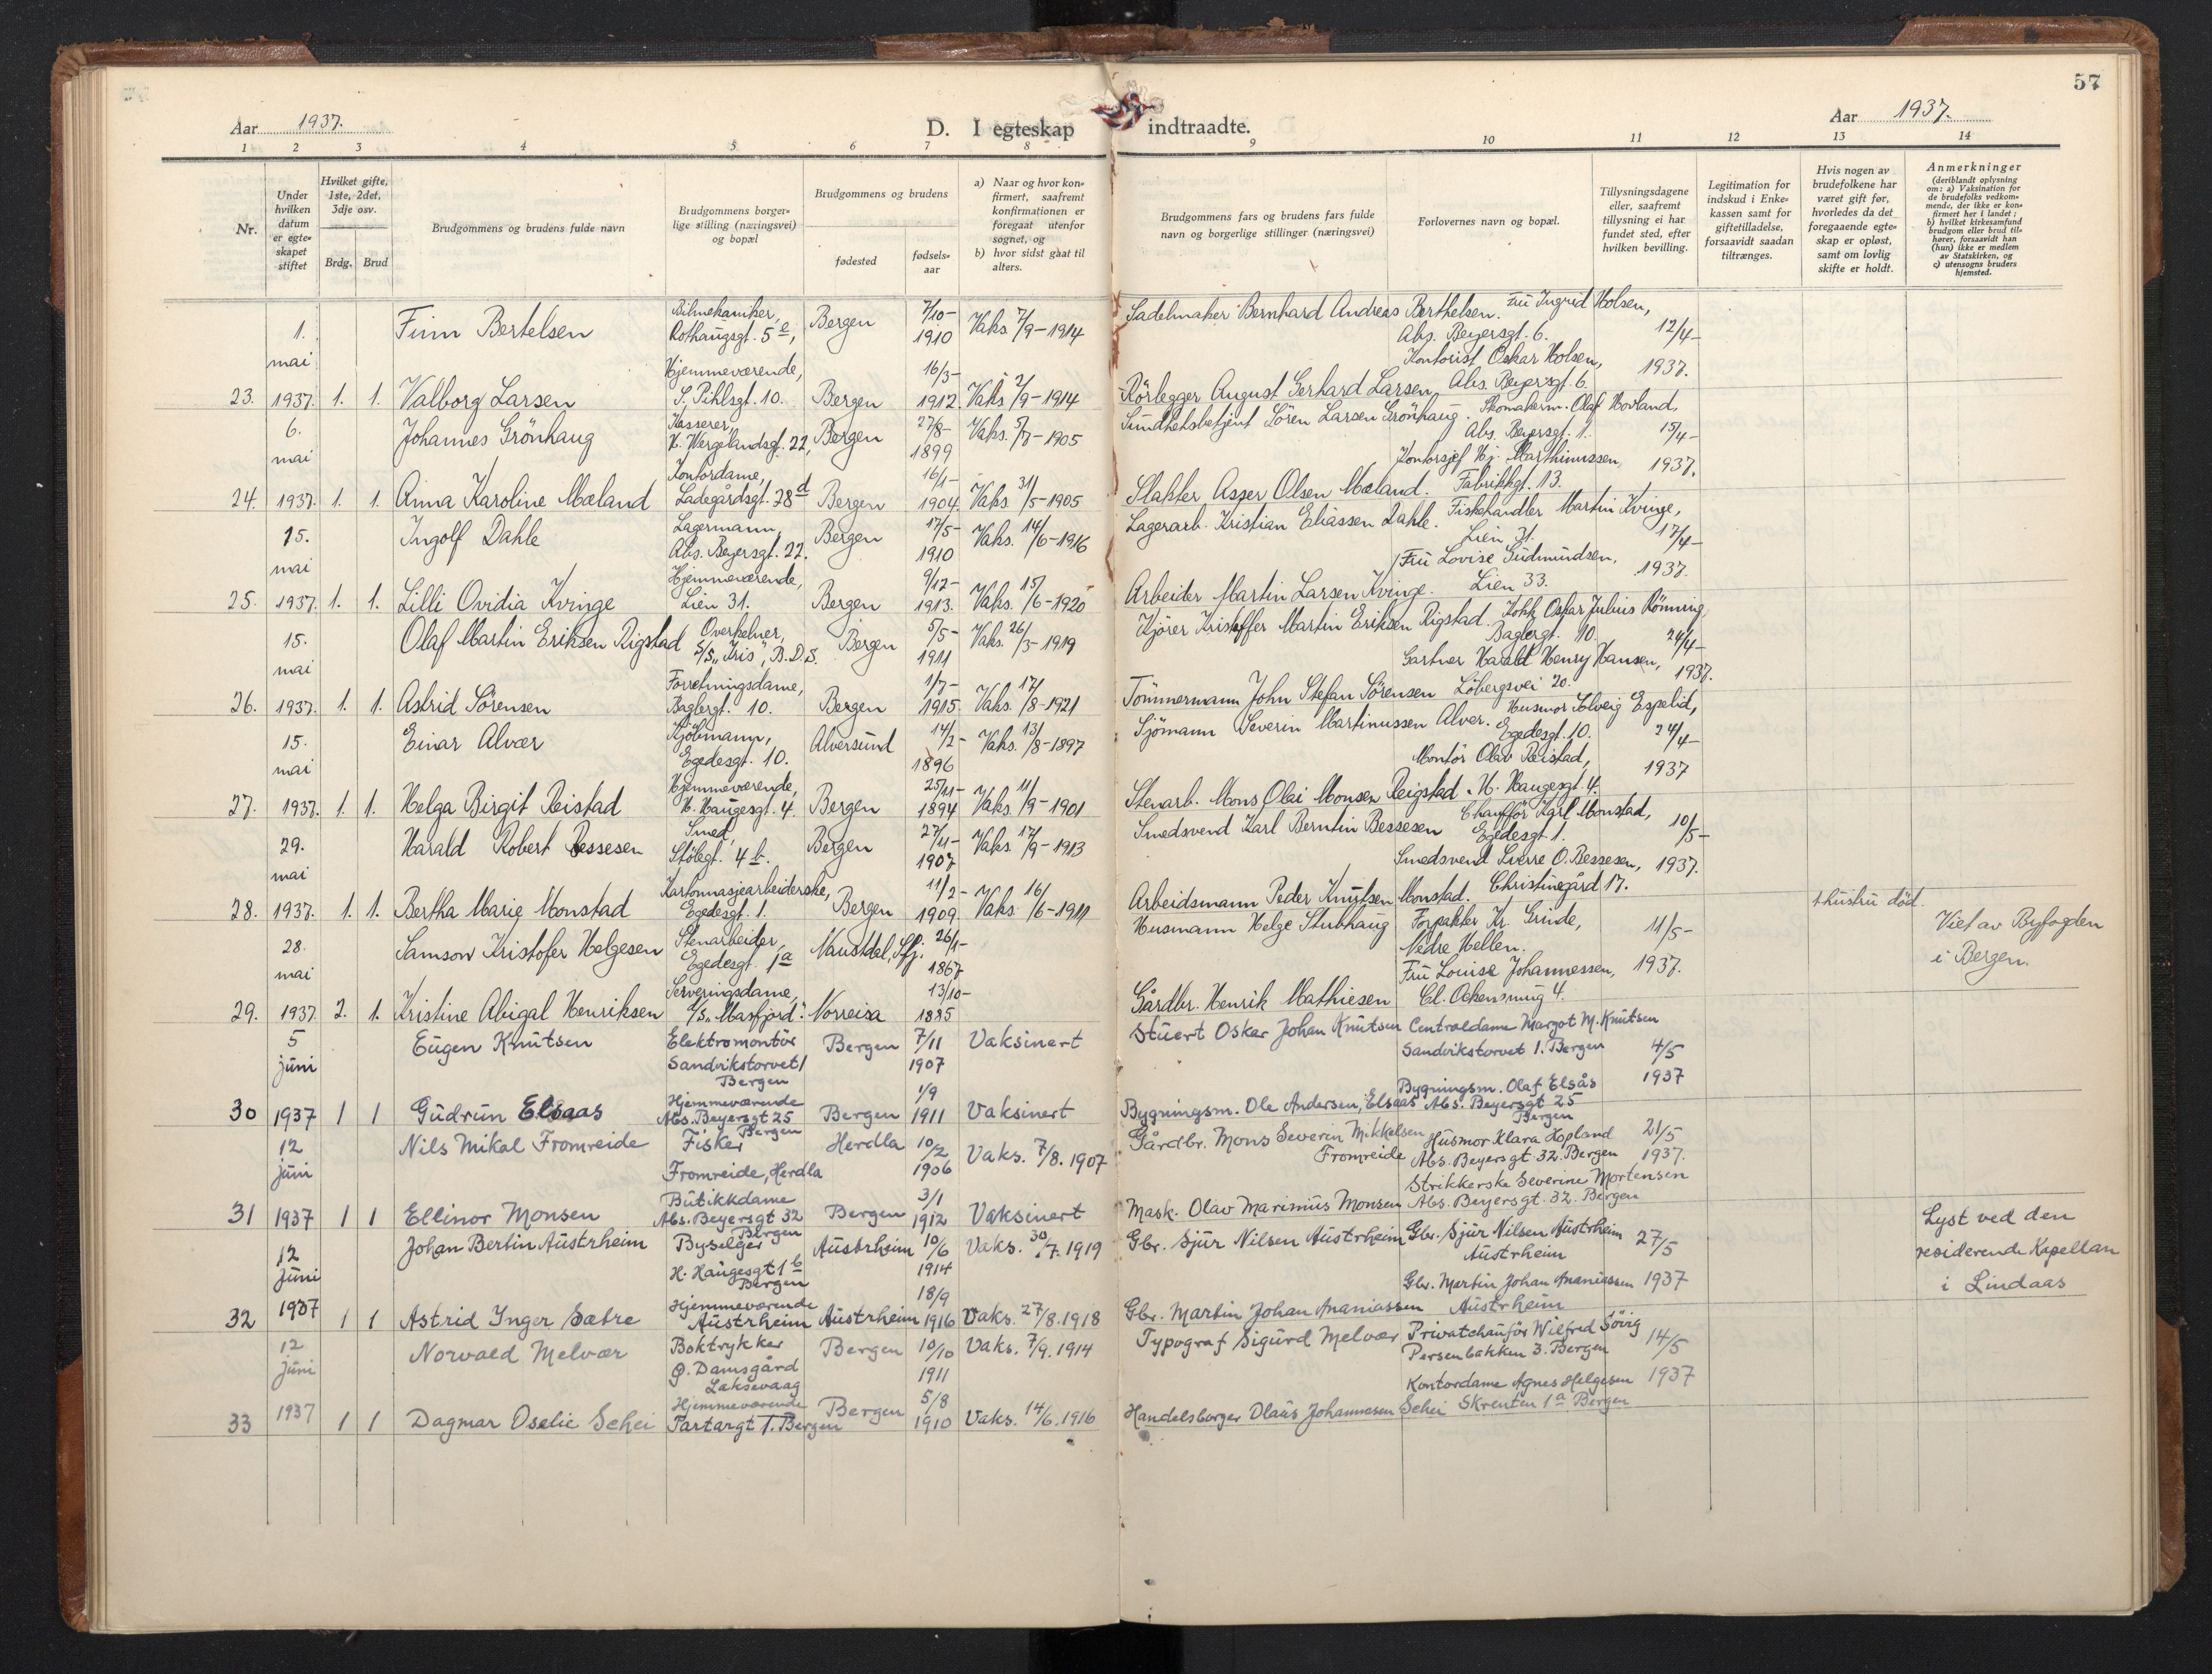 57
Aar 1937.
D. I egteskap indtraadte.
Aar 1937.
1 2 3 4 5 6 7 8 9 10 11 12 13 14
Nr.
Under hvilken datum er egte-skapet stiftet
Hvilket gifte, 1ste, 2det, 3dje osv.
Brdg. Brud
Brudgommens og brudens fulde navn
Brudgommens borger-lige stilling (næringsvei) og bopæl
Brudgommens og brudens
fødested
fødsels-aar
a) Naar og hvor kon-firmert, saafremt konfirmationen er foregaat utenfor sognet, og
b) hvor sidst gaat til alters.
Brudgommens fars og brudens fars fulde navn og borgerlige stillinger (næringsvei)
Forlovernes navn og bopæl.
Tillysningsdagene eller, saafremt tillysning ei har fundet sted, efter hvilken bevilling.
Legitimation for indskud i Enke-kassen samt for giftetilladelse, forsaavidt saadan tiltrænges.
Hvis nogen av brudefolkene har været gift før, hvorledes da det foregaaende egte-skap er opløst, samt om lovlig skifte er holdt.
Anmerkninger
(deriblandt oplysning om: a) Vaksination for de brudefolks vedkom-mende, der ikke er kon-firmert her i landet; b) hvilket kirkesamfund brudgom eller brud til-hører, forsaavidt han (hun) ikke er medlem av Statskirken, og c) utensogns bruders hjemsted.
1. mai
Finn Bertelsen
Bilmekaniker, Rothaugsgt. 5 e,
Bergen
7/10- 1910
Vaks. 7/9-1914
Sadelmaker Bernhard Andreas Berthelsen.
Fru Ingrid Holsen, Abs. Beyersgt. 6.
12/4-
23. 1937. 1. 1. Valborg Larsen
Hjemmeværende, S. Pihlsgt. 10.
Bergen
16/3- 1912.
Vaks 2/9-1914
Rörlegger August Gerhard Larsen
Kontorist Oskar Holsen, Abs. Beyersgt. 6.
1937.
6. mai
Johannes Grönhaug
Kasserer, H. Wergelandsgt. 22,
Bergen
27/8- 1899
Vaks. 5/7-1905
Sundhetsbetjent Sören Larsen Grönhaug.
Skomakerm. Olaf Hovland, Abs. Beyersgt. 1.
15/4-
24. 1937. 1. 1. Anna Karoline Mæland
Kontordame, Ladegårdsgt. 28 d
Bergen
16/1- 1904.
Vaks. 31/5-1905
Slakter Asser Olsen Mæland.
Kontorsjef Hj. Marthinussen, Fabrikkgt. 13.
1937.
15. mai
Ingolf Dahle
Lagermann, Abs. Beyersgt. 22.
Bergen
17/5- 1910
Vaks. 14/6-1916
Lagerarb. Kristian Eliassen Dahle.
Fiskehandler Martin Kvinge, Lien 31.
17/4-
25. 1937. 1. 1. Lilli Ovidia Kvinge
Hjemmeværende, Lien 31.
Bergen
9/12- 1913.
Vaks. 15/6-1920
Arbeider Martin Larsen Kvinge.
Fru Lovise Gudmundsen, Lien 33.
1937.
15. mai
Olaf Martin Eriksen Rigstad
Overkelner, S/S "Iris", B.D.S.
Bergen
5/5- 1911
Vaks. 26/3-1919
Kjörer Kristoffer Martin Eriksen Rigstad.
Kokk Oskar Julius Rönning, Baglergt. 10.
24/4-
26. 1937. 1. 1. Astrid Sörensen
Forretningsdame, Baglergt. 10.
Bergen
1/7- 1915.
Vaks. 17/8-1921
Tömmermann John Stefan Sörensen
Gartner Harald Henry Hansen, Löbergsvei 20.
1937.
15. mai
Einar Alvær
Kjöbmann, Egedesgt. 10.
Alversund
14/2- 1896
Vaks. 13/8-1897
Sjömann Severin Martinussen Alver.
Husmor Solveig Espelid, Egedesgt. 10.
24/4-
27. 1937. 1. 1. Helga Birgit Reistad
Hjemmeværende, H. Haugesgt. 4.
Bergen
25/11- 1894
Vaks. 11/9-1901
Stenarb. Mons Olai Monsen Reigstad
Montör Olav Reistad, H. Haugesgt. 4.
1937
29. mai
Harald Robert Bessesen
Smed, Stölegt. 4 b.
Bergen
27/11- 1907
Vaks. 17/9-1913
Smedsvend Karl Berntin Bessesen
Chaufför Karl Monstad, Egedesgt. 1.
10/5-
28. 1937. 1. 1. Bertha Marie Monstad
Kartonnasjearbeiderske, Egedesgt. 1.
Bergen
11/2- 1909.
Vaks. 16/6-1911
Arbeidsmann Peder Knutsen Monstad.
Smedsvend Sverre O. Bessesen, Christinegård 17.
1937.
28. mai
Samson Kristofer Helgesen
Stenarbeider, Egedesgt. 1 a
Naustdal, Sfj.
26/1- 1867
Husmann Helge Stubhaug
Forpakter Kr. Grinde, Nedre Hellen.
11/5-
1 hustru död.
Viet av Byfogden i Bergen.
29. 1937. 2. 1. Kristine Abigal Henriksen
Serveringsdame, S/S "Masfjord".
Norreisa
13/10- 1885
Gårdbr. Henrik Mathiesen
Fru Louise Johannessen, Cl. Ockensmug 4.
1937.
5 juni
Eugen Knutsen
Elektromontör Sandvikstorvet 1 Bergen
Bergen
7/11 1907
Vaksinert
Stuert Oskar Johan Knutsen
Centraldame Margot M. Knutsen Sandvikstorvet 1. Bergen
4/5
30 1937 1 1 Gudrun Elsaas
Hjemmeværende Abs. Beyersgt 25 Bergen
Bergen
1/9 1911
Vaksinert
Bygningsm. Ole Andersen, Elsaas
Bygningsm. Olaf Elsås Abs. Beyersgt 25 Bergen
1937
12 juni
Nils Mikal Fromreide
Fisker Fromreide, Herdla
Herdla
10/2 1906
Vaks. 7/8. 1907
Gårdbr. Mons Severin Mikkelsen Fromreide
Husmor Klara Hopland Abs. Beyersgt. 32. Bergen
21/5 1937.
31 1937 1 1 Ellinor Monsen
Butikkdame Abs. Beyersgt 32 Bergen
Bergen
3/1 1912
Vaksinert
Mask. Olav Marimius Monsen
Strikkerske Severine Mortensen Abs. Beyersgt. 32. Bergen
12 juni
Johan Bertin Austrheim
Byselger H. Haugesgt 1 b Bergen
Austrheim
10/6 1914
Vaks. 30/7. 1919
Gbr. Sjur Nilsen Austrheim
Gbr. Sjur Nilsen Austrheim Austrheim
27/5
Lyst ved den residerende Kapellan i Lindaas
32 1937 1 1 Astrid Inger Sætre
Hjemmeværende Austrheim
Austrheim
18/9 1916
Vaks. 27/8. 1918
Gbr. Martin Johan Ananiassen
Gbr. Martin Johan Ananiassen Austrheim
1937
12 juni
Norvald Melvær
Boktrykker Ø. Damsgård Laksevaag
Bergen
10/10 1911
Vaks. 7/9. 1914
Typograf Sigurd Melvær
Privatchaufför Wilfred Sövig Persenbakken 3. Bergen
14/5
33 1937 1 1 Dagmar Oselie Schei
Hjemmeværende Tartargt 1. Bergen
Bergen
5/8 1910
Vaks. 14/6. 1916
Handelsborger Olaus Johannesen Schei
Kontordame Agnes Helgesen Skrenten 1 a Bergen
1937